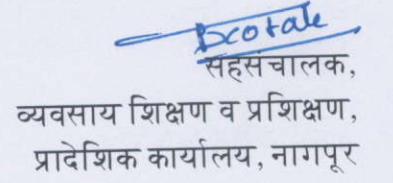 सहसंचालक,
व्यवसाय शिक्षण व प्रशिक्षण,
प्रादेशिक कार्यालय, नागपूर